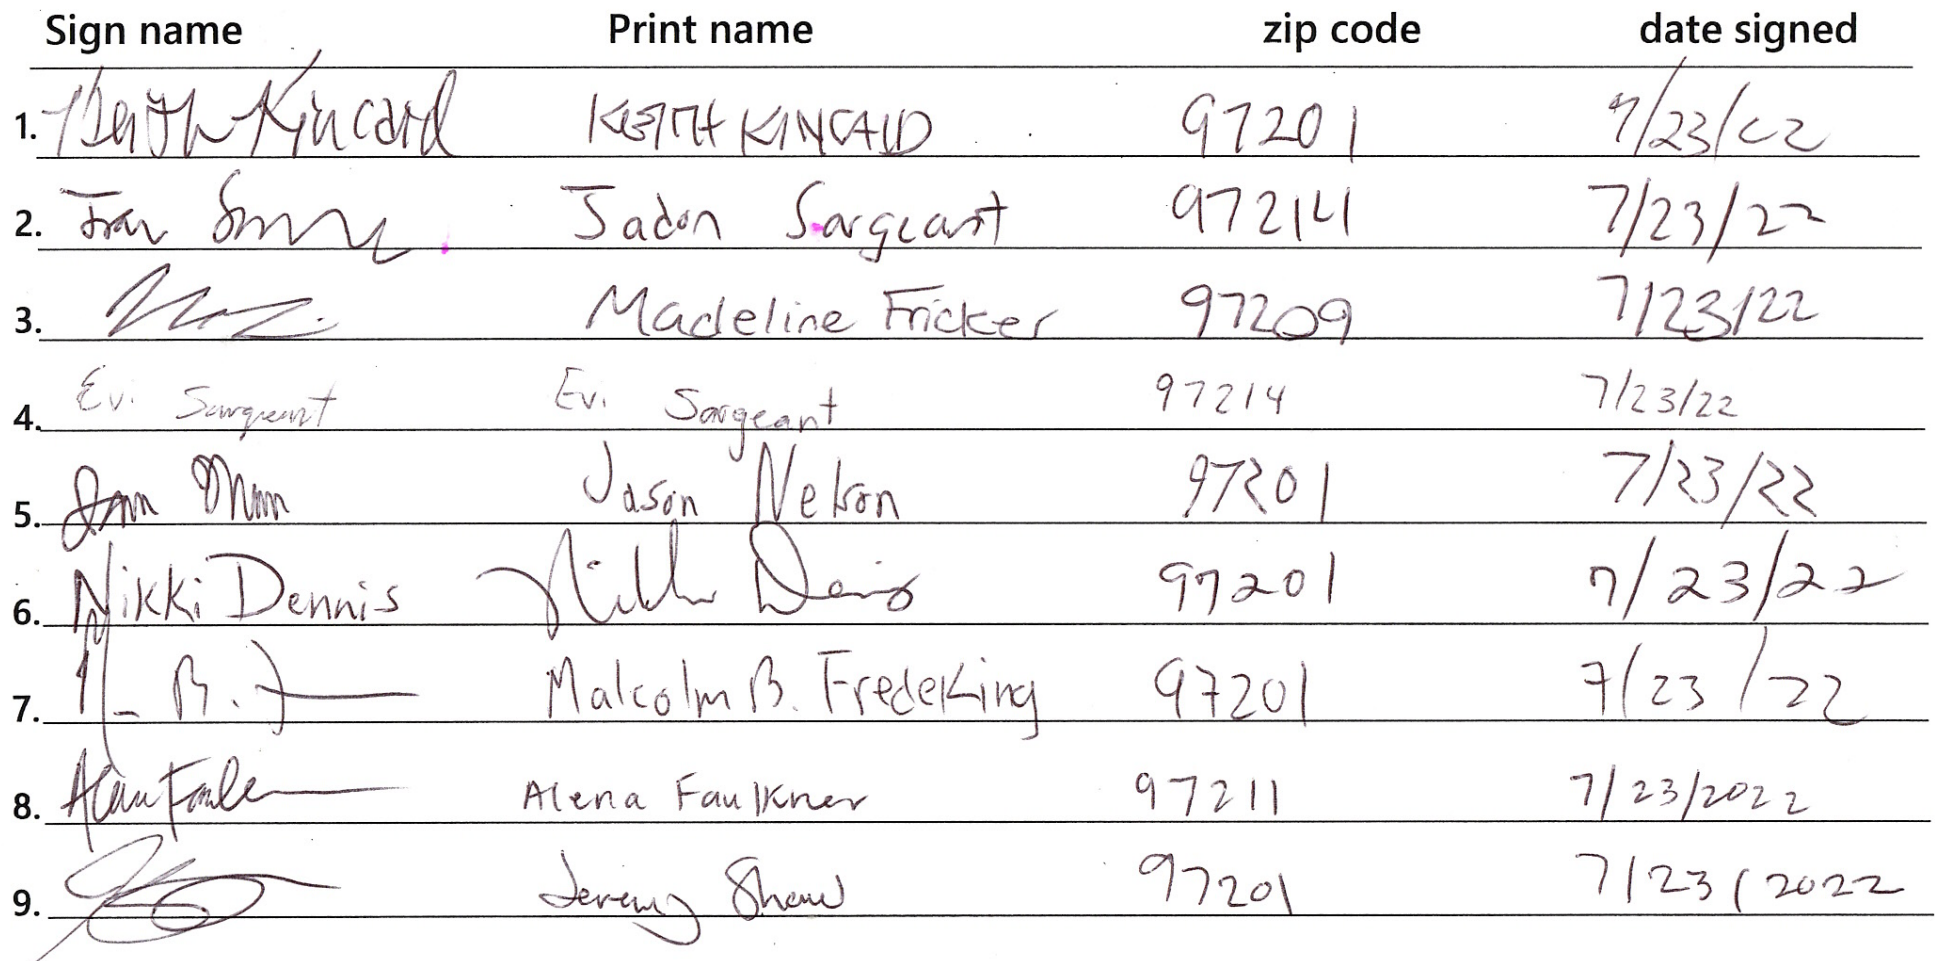 Sign name Print name zip code date signed
1. Keith Kincaid KEITH KINCAID 97201 7/23/22
2. Jadon Sargeant 97214 7/23/22
3. Madeline Fricker 97209 7/23/22
4. Evi Sargeant Evi Sargeant 97214 7/23/22
5. Jason Nelson 97201 7/23/22
6. Nikki Dennis 97201 7/23/22
7. B. Malcolm B. FredeKing 97201 7/23/22
8. Alena Faulkner 97211 7/23/2022
9. Jeremy Shaw 97201 7/23/2022